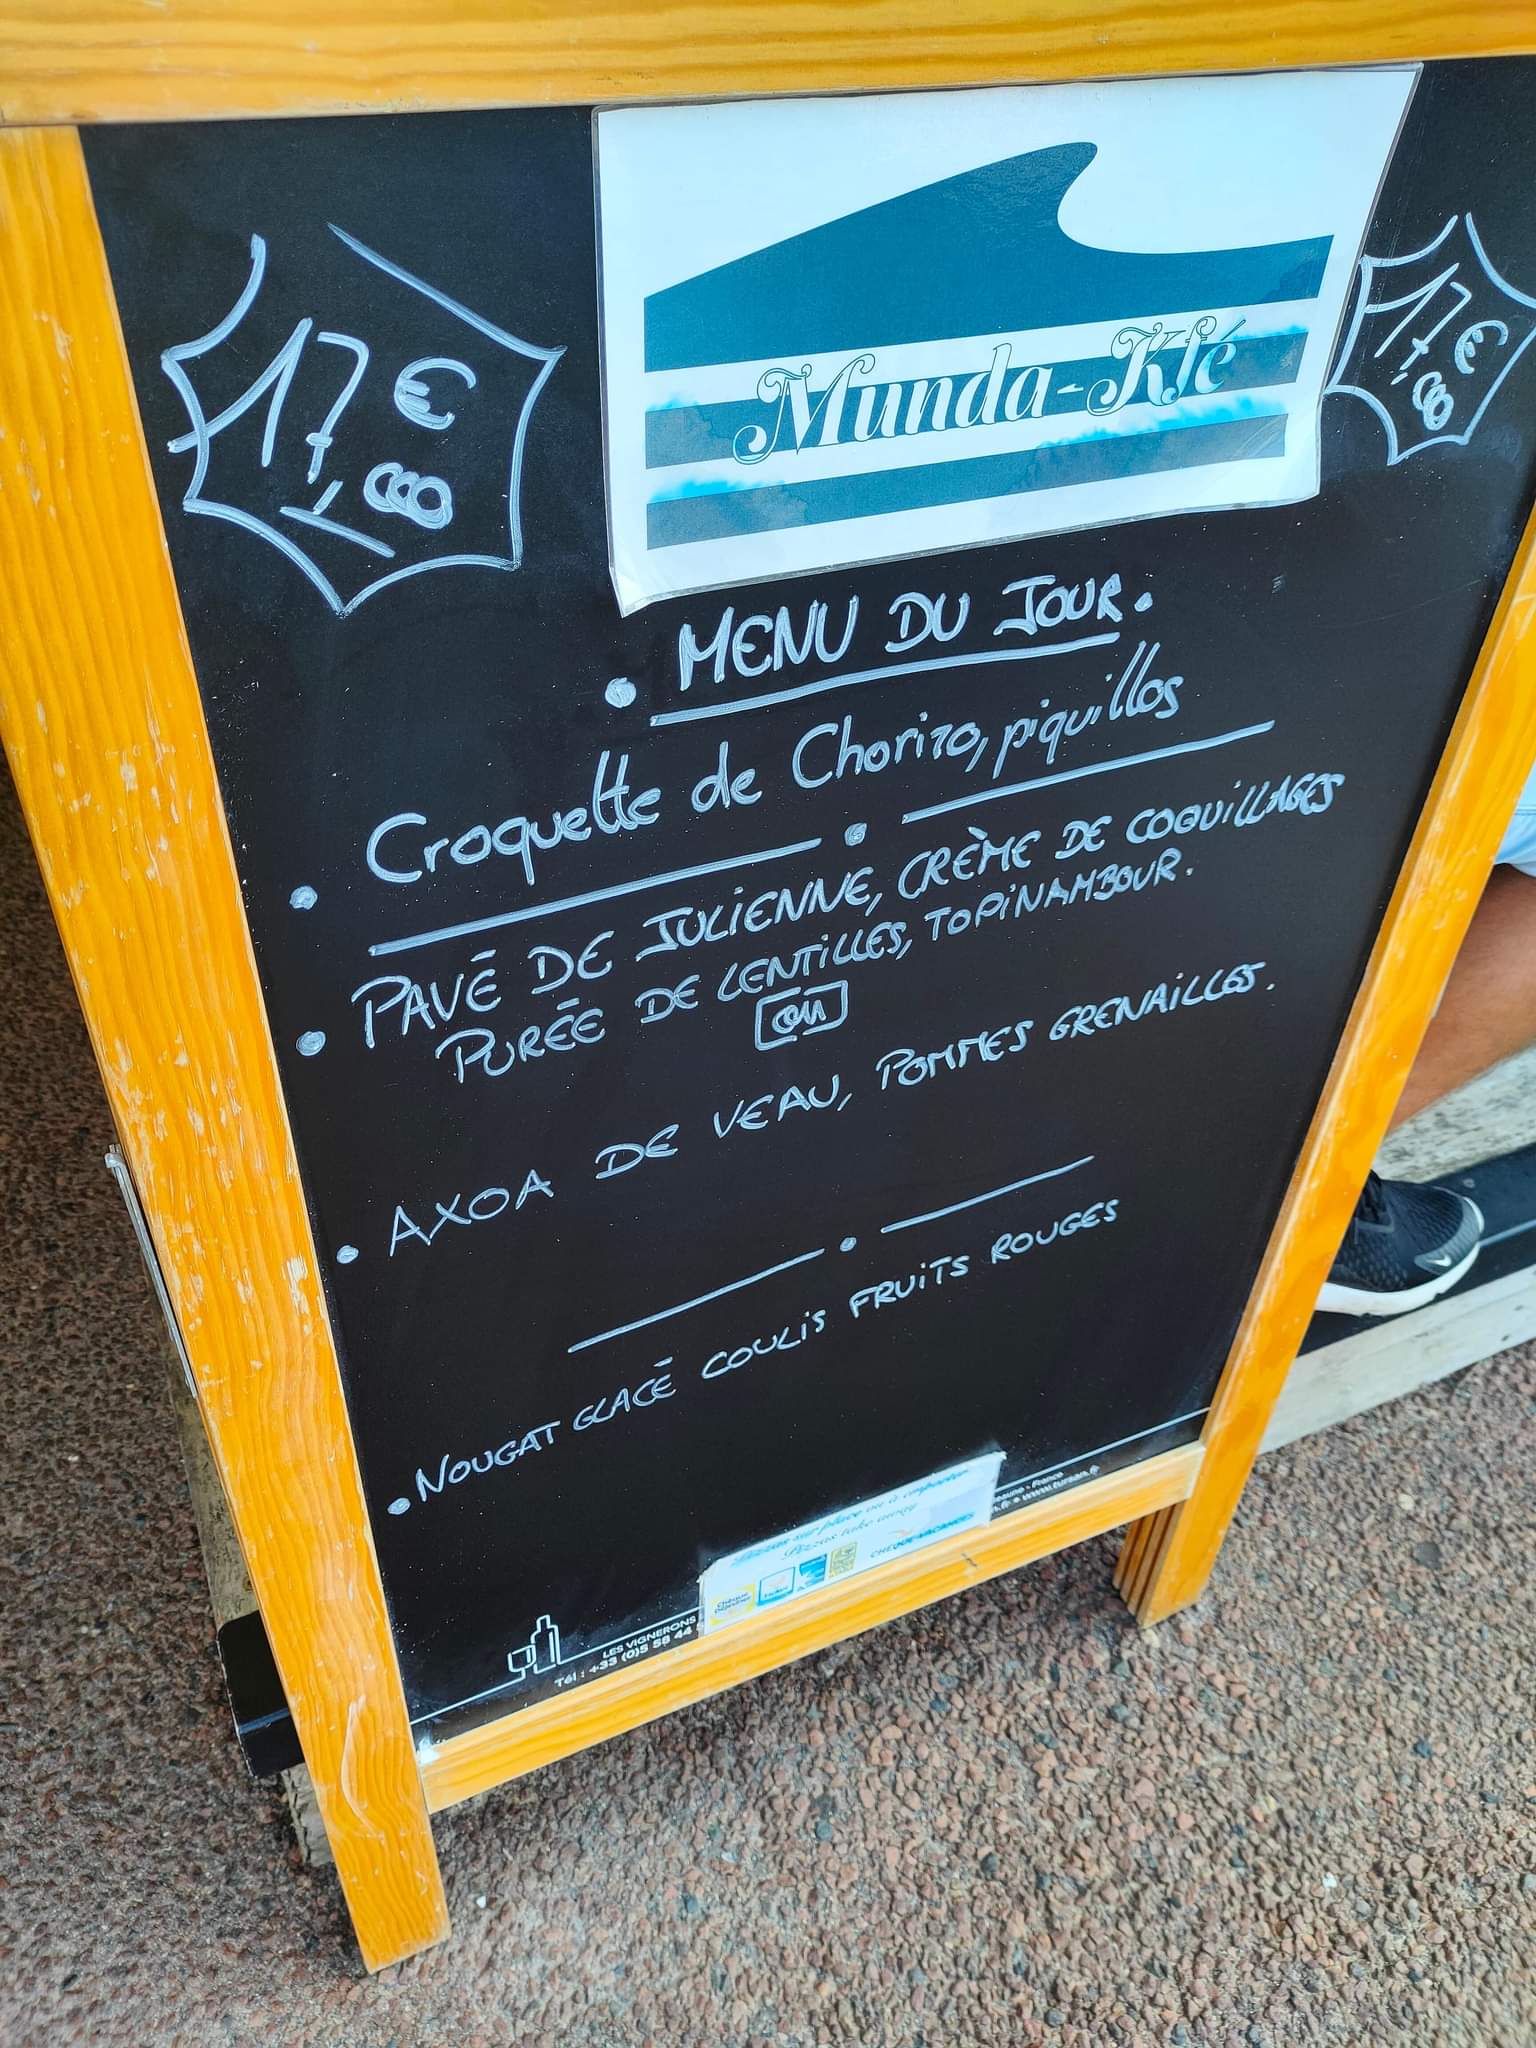 17€
Munda-Kfé
17€
• MENU DU JOUR.
• Croquette de Chorizo, piquillos
• PAVÉ DE JULIENNE, CRÈME DE COQUILLAGES
PURÉE DE LENTILLES, TOPINAMBOUR.
ou
• AXOA DE VEAU, POMMES GRENAILLES.
• NOUGAT GLACÉ COULIS FRUITS ROUGES
Pizzas sur place ou à emporter
Pizzas take away
CHEQUE-VACANCES
Chèque Déjeuner
LES VIGNERONS
Geaune - France
Tél : +33 (0)5 58 44
.fr • www.tursan.fr